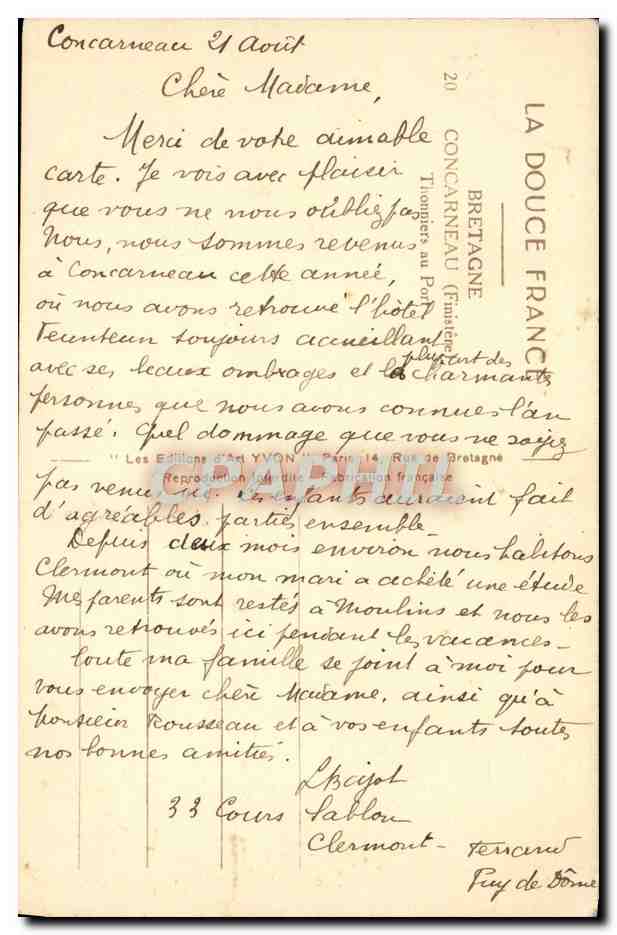 Concarneau 21 Août
Chère Madame,
Merci de votre aimable
carte. Je vois avec plaisir
que vous ne nous oubliez pas
Nous, nous sommes revenus
à Concarneau cette année,
où nous avons retrouvé l'hôtel
toujours accueillant
avec ses beaux ombrages et la plupart des
charmantes
personnes que nous avons connues l'an
passé. Quel dommage que vous ne soyez
pas venu les enfants auraient fait
d'agréables parties ensemble
Depuis deux mois environ nous habitons
Clermont où mon mari a acheté une étude
Mes parents sont restés à Moulins et nous les
avons retrouvés ici pendant les vacances-
toute ma famille se joint à moi pour
vous envoyer chère Madame, ainsi qu'à
Monsieur Rousseau et à vos enfants toutes
nos bonnes amitiés.
33 Cours Sablon
Clermont-Ferrand
Puy de Dôme
LA DOUCE FRANCE
BRETAGNE
20 CONCARNEAU (Finistère
Thonniers au Port
" Les Editions d'Art YVON " Paris 14, Rue de Bretagne
Reproduction Interdite Fabrication française
CPAPHIL